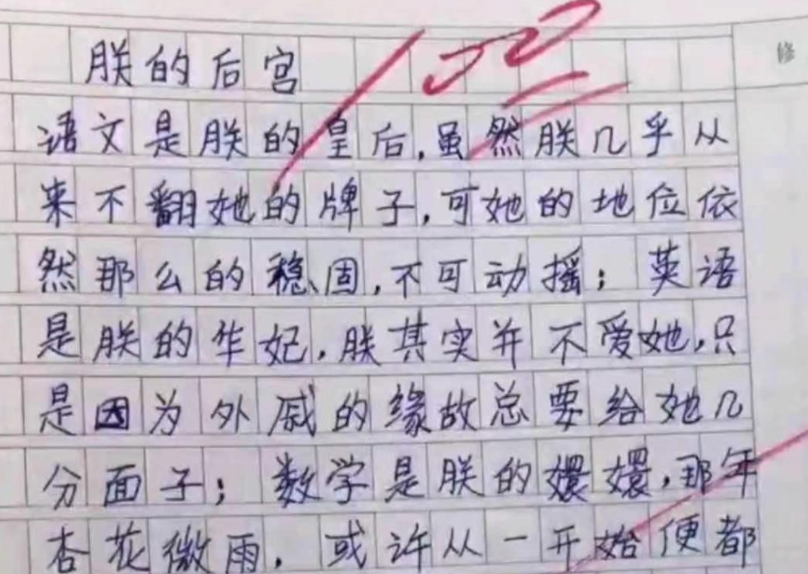 朕的后宫
修
语文是朕的皇后,虽然朕几乎从
来不翻她的牌子,可她的地位依
然那么的稳固,不可动摇；英语
是朕的华妃,朕其实并不爱她,只
是因为外戚的缘故总要给她几
分面子；数学是朕的嬛嬛,那年
杏花微雨,或许从一开始便都